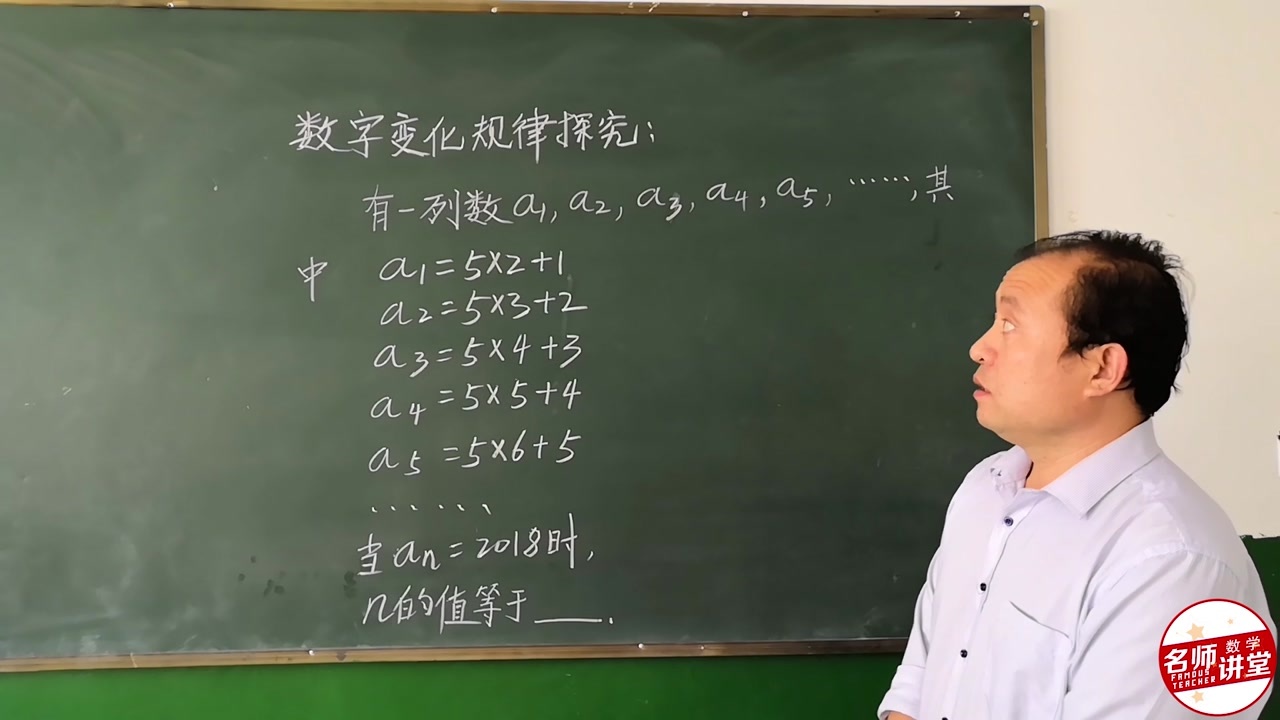 数字变化规律探究:
有一列数a₁, a₂, a₃, a₄, a₅, ……, 其
中 a₁=5×2+1
a₂=5×3+2
a₃=5×4+3
a₄=5×5+4
a₅=5×6+5
······
当aₙ=2018时,
n的值等于___.
名师数学讲堂
FAMOUS TEACHER